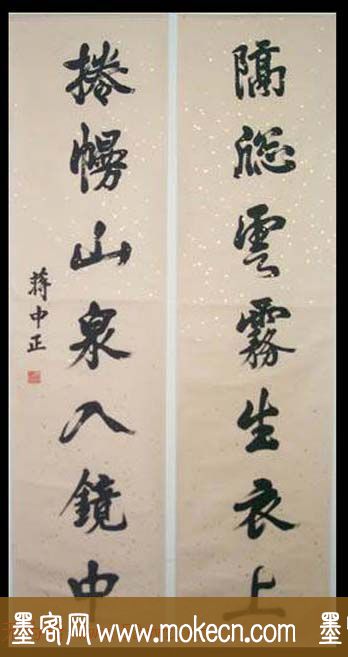 隔牕雲霧生衣上
捲幔山泉入鏡中
蔣中正
墨客网www.mokecn.com 墨客网